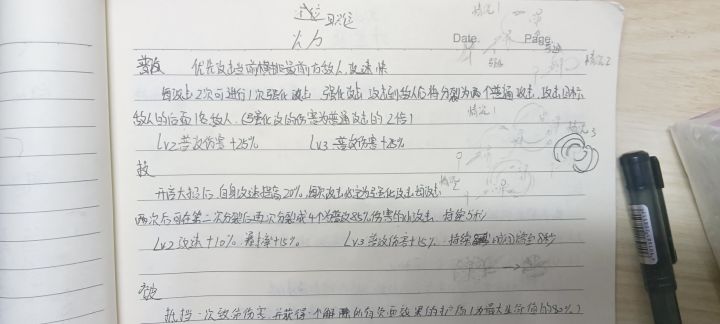 情况1
Date. Page.
情况2
普攻 优先攻击当前横排最前方敌人,攻速快
每攻击2次可进行1次强化攻击 强化攻击攻击到敌人后将分裂为两个普通攻击,攻击目标
敌人的后面1名敌人.(强化攻的伤害为普通攻击的2倍)
情况1
情况3
Lv2 普攻伤害+25% Lv3 普攻伤害+25%
技
开启大招后,自身攻速提高20%,每次攻击
情况2
两次后可在第二次分裂后再次分裂成4个 普攻85%伤害的小攻击,持续5秒
Lv2 攻速+10%,暴击率+15% Lv3 普攻伤害+15% 持续时间 8秒
抵挡一次致命伤害,并获得一个解除所有负面效果的护盾(为最大生命值的80%)